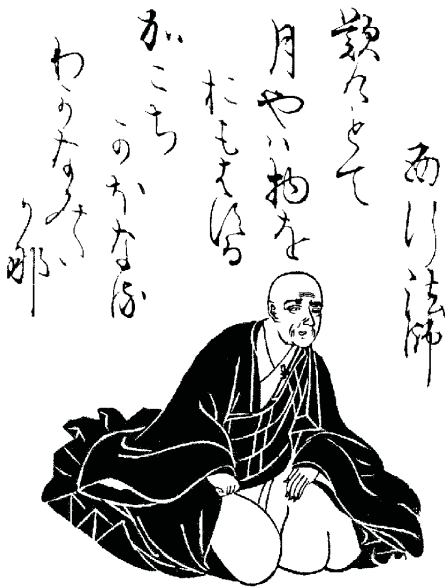 西行法師
歎けとて
月やハ物を
おもはする
かこち
かほなる
わかなみた
か那